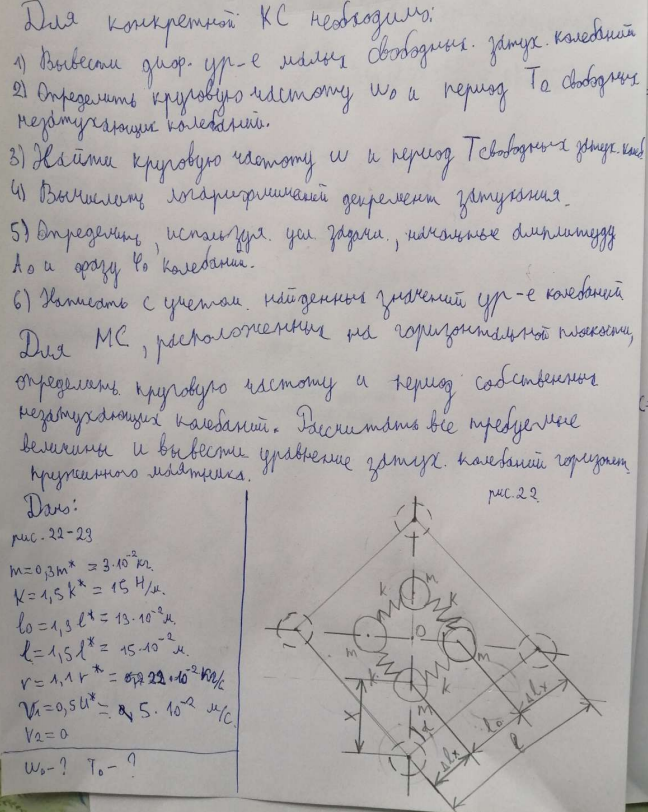 Для конкретной КС необходимо:
1) Вывести диф. ур-е малых свободных. затух. колебаний
2) Определить круговую частоту ω₀ и период T₀ свободных
незатухающих колебаний.
3) Найти круговую частоту ω и период T свободных затух. колеб
4) Вычислить логарифмический декремент затухания.
5) Определить, используя. усл. задачи., начальные амплитуду
A₀ и фазу φ₀ колебания.
6) Написать с учетом. найденных значений ур-е колебаний
Для МС, расположенных на горизонтальной плоскости,
определить. круговую частоту и период собственных
незатухающих колебаний. Рассчитать все требуемые
величины и вывести уравнение затух. колебаний горизонт.
пружинного маятника.
Дано:
рис. 22-23
m = 0,3m* = 3·10⁻² кг.
K = 1,5k* = 15 Н/м.
l₀ = 1,3l* = 13·10⁻² м.
l = 1,5l* = 15·10⁻² м.
r = 1,1r* = 22·10⁻² кг/с
V₁ = 0,5U* = 5·10⁻² м/с.
V₂ = 0
ω₀ - ? T₀ - ?
рис. 22
m
k
k
O
m
m
k
k
m
x
α
Δlₓ
l₀
Δlₓ
l